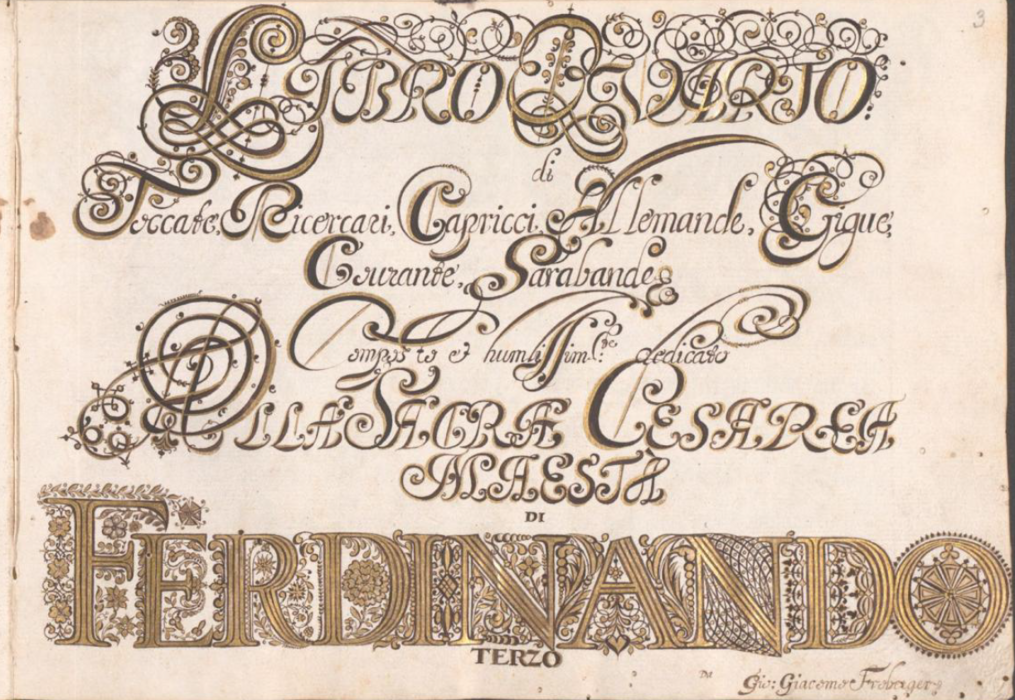 3
LIBRO QVARTO:
di
Toccate, Ricercari, Capricci, Allemande, Gigue,
Courante, Sarabande
Composto et humilissim.te dedicato
ALLA SACRA CESAREA
MAESTÀ
DI
FERDINANDO
TERZO
Da Gio: Giacomo Froberger